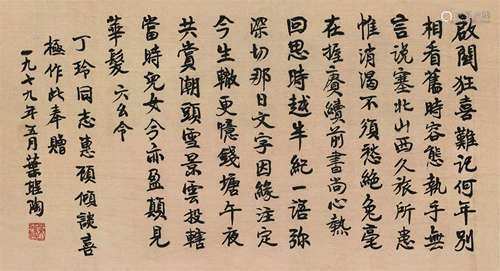 啟關狂喜難記何年別
相看舊時容態執手無
言說塞北山西久旅所患
惟消渴不須愁絕兔毫
在握賡續前書尚心熱
回思時越半紀一語彌
深切那日文字因緣注定
今生轍更憶錢塘午夜
共賞潮頭雪景雲投轄
當時兒女今亦盈顛見
華髮 六么令
丁玲同志惠顧傾談喜
極作此奉贈
一九七九年五月葉聖陶